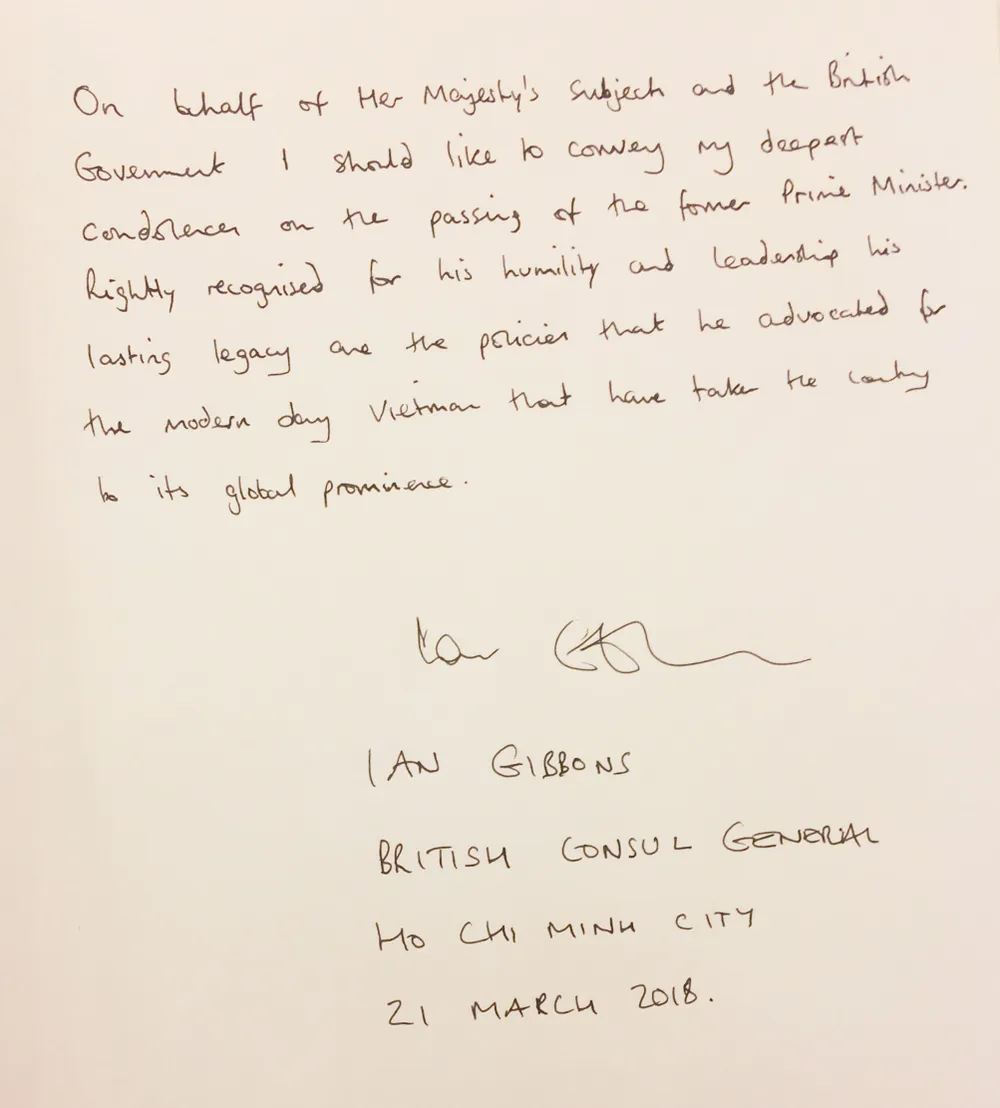 On behalf of Her Majesty's Subjects and the British
Government I should like to convey my deepest
condolences on the passing of the former Prime Minister.
Rightly recognised for his humility and leadership his
lasting legacy are the policies that he advocated for
the modern day Vietnam that have taken the country
to its global prominence.
Ian Gibbons
IAN GIBBONS
BRITISH CONSUL GENERAL
HO CHI MINH CITY
21 MARCH 2018.